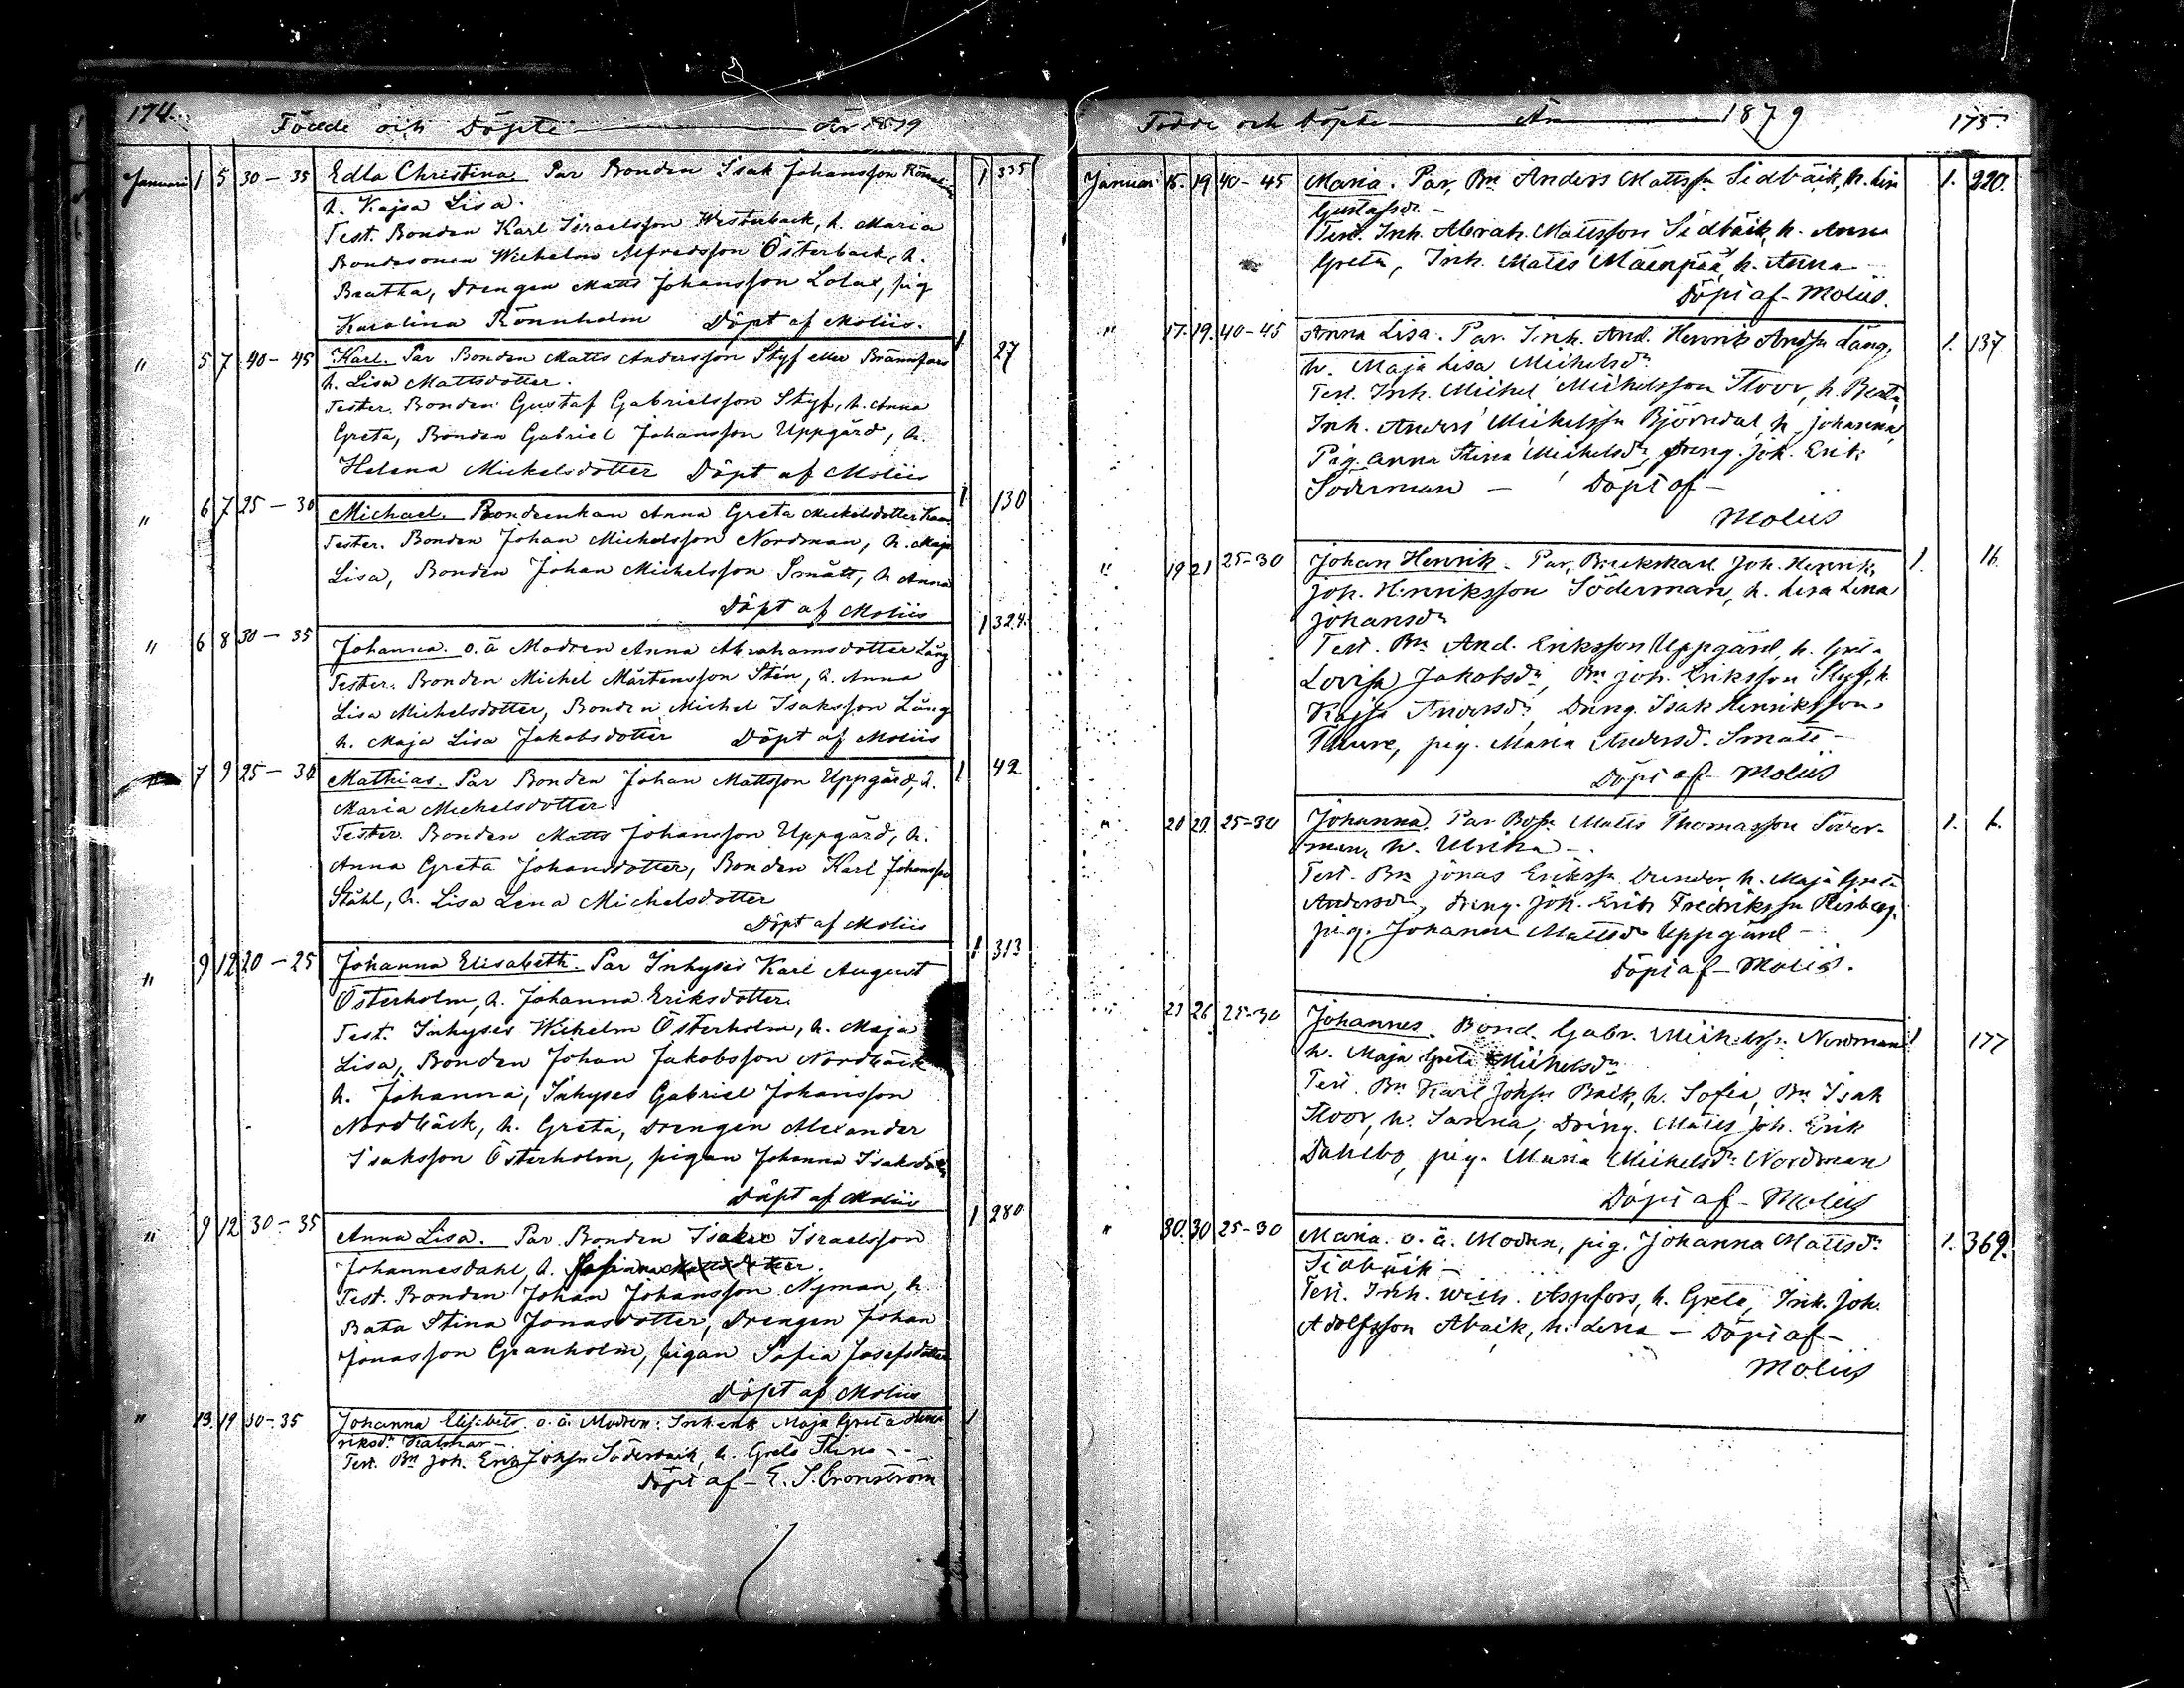 174.
Födde och Döpte År 1879
Januari 1 5 30-35 Edla Christina Par Bonden Isak Johansson 1 335
h. Kajsa Lisa.
Test. Bonden Karl Israelsson Westerback, h. Maria
Bondesonen Wilhelm Alfredsson Österback, h.
Beatha, Drengen Matts Johansson Lolax, pig
Karolina Rönnholm Döpt af Moliis.
" 5 7 40-45 Karl. Par Bonden Matts Andersson Styf eller Brännfors 1 27
h. Lisa Mattsdotter.
Tester. Bonden Gustaf Gabrielsson Styf, h. Anna
Greta, Bonden Gabriel Johansson Uppgård, h.
Helena Mickelsdotter Döpt af Moliis
" 6 7 25-30 Michael. Bondeenkan Anna Greta Mickelsdotter 1 130
Tester. Bonden Johan Michelsson Nordman, h. Maja
Lisa, Bonden Johan Michelsson Smått, h Anna
Döpt af Moliis
" 6 8 30-35 Johanna. o.ä Modren Anna Abrahamsdotter Lång 1 324.
Tester. Bonden Michel Mårtensson Stén, h. Anna
Lisa Michelsdotter, Bonden Michel Isaksson Lång
h. Maja Lisa Jakobsdotter Döpt af Moliis
7 9 25-30 Mathias. Par Bonden Johan Mattsson Uppgård, h. 1 42
Maria Michelsdotter
Tester. Bonden Matts Johansson Uppgård, h.
Anna Greta Johansdotter, Bonden Karl Johansson
Ståhl, h. Lisa Lena Michelsdotter
Döpt af Moliis
" 9 12 20-25 Johanna Elisabeth. Par Inhyses Karl August 1 313
Österholm, h. Johanna Eriksdotter.
Test. Inhyses Wilhelm Österholm, h. Maja
Lisa, Bonden Johan Jakobsson Nordbäck
h. Johanna, Inhyses Gabriel Johansson
Nordbäck, h. Greta, Drengen Alexander
Isaksson Österholm, pigan Johanna Isaksdotter
Döpt af Moliis
" 9 12 30-35 Anna Lisa. Par Bonden Isak Israelsson 1 280
Johannesdahl, h.
Test. Bonden Johan Johansson Nyman, h.
Bata Stina Jonasdotter, Drengen Johan
Jonasson Granholm, pigan Sofia Josefsdotter
Döpt af Moliis
" 13. 19 30-35 Johanna Elisabet o.ä. Modren: Inh.enk Maja Greta Hen- 1
riksdr
Test. Bn Joh. Erik Johsn Söderback, h. Greta Stina
Döpt af E. S. Cronström
Födde och Döpte År 1879 175.
Januari 15. 19 40-45 Maria. Par, Bn Anders Mattssn Sidbäck, h. Lisa 1. 220.
Gustafsdr
Test. Inh. Abrah. Mattsson Sidbäck, h. Anna
Greta, Inh. Matts Mäenpää, h. Anna
Döpt af Moliis.
" 17. 19. 40-45 Anna Lisa. Par. Inh. And. Henrik Andssn Lång, 1. 137
h. Maja Lisa Michelsdr
Test. Inh. Michel Michelsson Stoor, h. Beata,
Inh. Anders Michelssn Björndal, h. Johanna,
Pig. Anna Stina Michelsdr, Dreng. Joh. Erik
Söderman - Döpt af
Moliis
" 19 21 25-30 Johan Henrik. Par, Brukskarl Joh. Henrik 1. 16.
Joh. Henriksson Söderman, h. Lisa Lena
Johansdr
Test. Bn And. Eriksson Uppgård, h. Greta
Lovisa Jakobsdr, Bn Joh. Eriksson Styf, h.
Kajsa Andersdr, Dräng. Isak Henriksson
Thure, pig. Maria Andersd. Smått
Döpt af Moliis
" 20 20 25-30 Johanna. Par Matts Thomasson Söder- 1.
man, h. Ulrika
Test. Bn Jonas Erikssn Dunder, h. Maja Greta
Andersdr, dreng. Joh. Erik Fredrikssn Risberg,
pig. Johanna Mattsdr Uppgård
Döpt af Moliis.
" 23 26 25-30 Johannes. Bond. Gabr. Michelss. Nordman 1 177
h. Maja Greta Michelsdr
Test. Bn Karl Johsn Back, h. Sofia, Bn Isak
Stoor, h. Sanna, Dräng. Matts Joh. Erik
Dahlbo, pig. Maria Michelsdr Nordman
Döpt af Moliis
" 30. 30 25-30 Maria. o.ä. Modren, pig. Johanna Mattsdr 1. 369.
Sidbäck
Test. Inh. Wilh. Aspfors, h. Greta, Inh. Joh.
Adolfsson Aback, h. Lena - Döpt af
Moliis